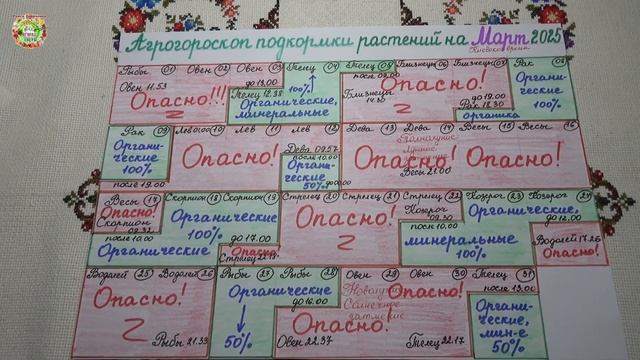 Агрогороскоп подкормки растений на Март 2025
Киевское время
Рыбы 01 Овен 02 Овен 03 Телец 04 Телец 05 Близнецы 06 Близнецы 07 Рак 08
Овен 11.53
Опасно!!!
до 13.00
Телец 12.38
100%
Органические,
минеральные
после 09.00
Близнецы
14.30
Опасно!
до 19.00
Рак 18.30
органика
Органические
100%
Рак 09 Лев 10 Лев 11 Лев 12 Дева 13 Дева 14 Весы 15 Весы 16
Органи-
ческие
100%
после 19.00
Опасно!
Дева 09.57
после 10.00
Органи-
ческие
50%
Полнолуние
Лунное
Опасно!
Весы 21.00
Опасно!
Весы 17 Скорпион 18 Скорпион 19 Стрелец 20 Стрелец 21 Стрелец 22 Козерог 23 Козерог 24
Опасно!
Скорпион
09.32
после 10.00
Органические
Органические
100%
до 17.00
Опасно
Стрелец
Опасно!
Козерог
09.30
после 10.00
минеральные
100%
Органические,
до 12.00
Водолей 17.26
Опасно!
Водолей 25 Водолей 26 Рыбы 27 Рыбы 28 Овен 29 Овен 30 Телец 31
Опасно!
Рыбы 21.33
Органические
50%
до 16.00
Овен 22.37
Новолуние
Солнечное
затмение
Опасно.
Опасно!
Телец 22.17
после 13.00
Органи-
ческие,
мин-е
50%